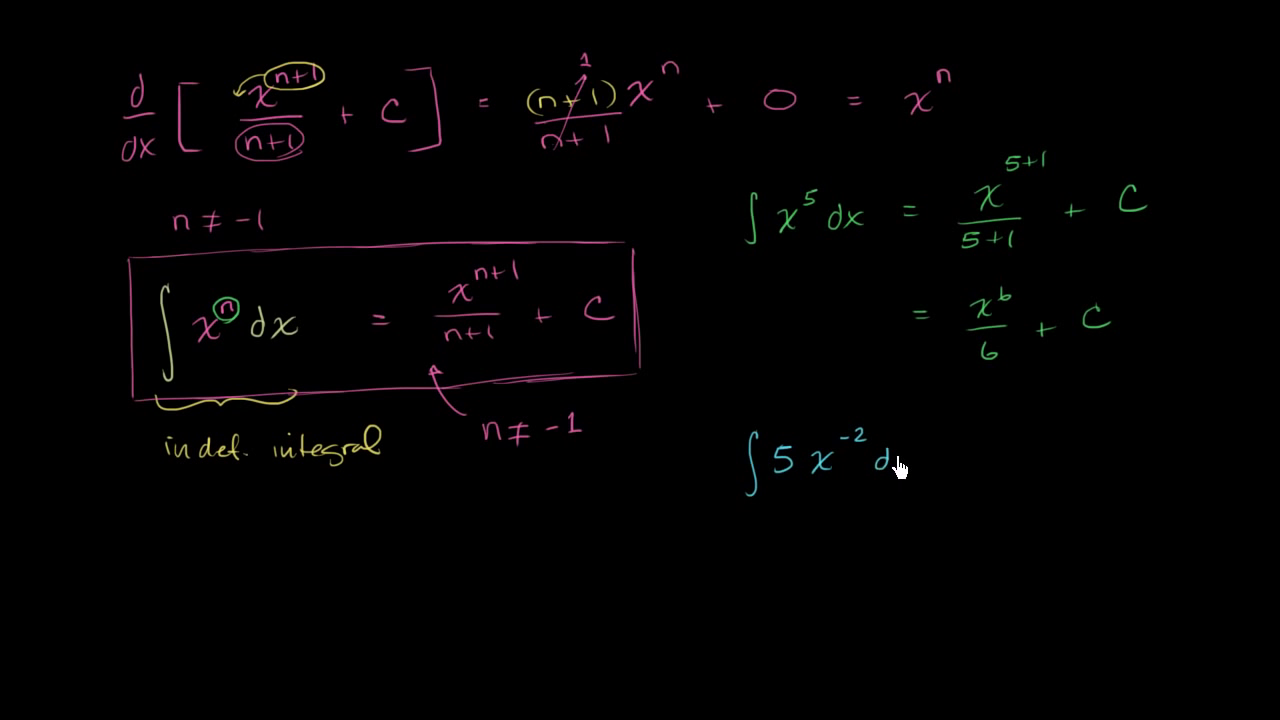 d/dx [ x^(n+1)/(n+1) + C ] = (n+1)x^n/(n+1) + 0 = x^n
1
n ≠ -1
∫ x^n dx = x^(n+1)/(n+1) + C
n ≠ -1
indef. integral
∫ x^5 dx = x^(5+1)/(5+1) + C
= x^6/6 + C
∫ 5 x^-2 d